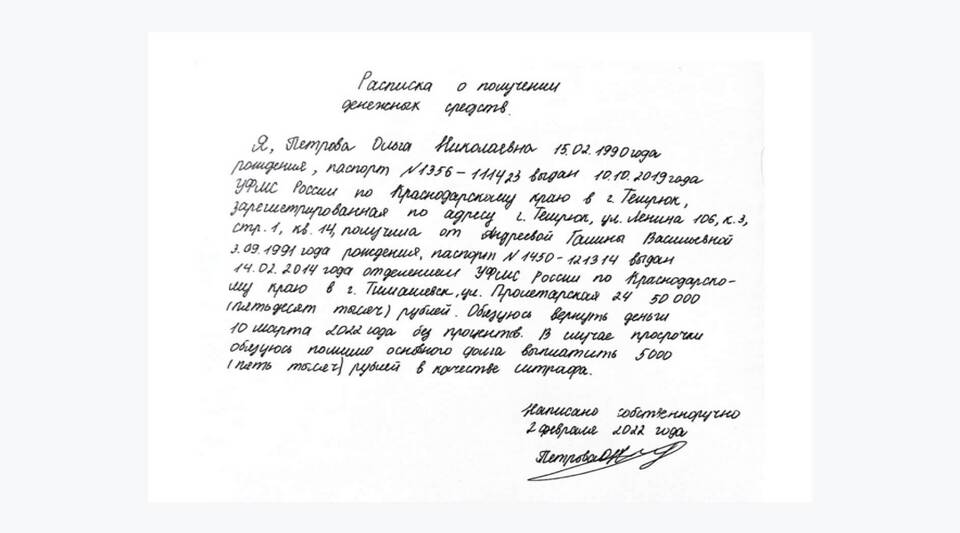 Расписка о получении
денежных средств.
Я, Петрова Ольга Николаевна 15.02.1990 года
рождения, паспорт N1356-111423 выдан 10.10.2019 года
УФМС России по Краснодарскому краю в г. Темрюк,
зарегистрированная по адресу г. Темрюк, ул. Ленина 106, к.3,
стр. 1, кв. 14, получила от Андреевой Галины Васильевной
3.09.1991 года рождения, паспорт N1450-121314 выдан
14.02.2014 года отделением УФМС России по Краснодарско-
му краю в г. Тимашевск, ул. Пролетарская 24 50 000
(пятьдесят тысяч) рублей. Обязуюсь вернуть деньги
10 марта 2022 года без процентов. В случае просрочки
обязуюсь помимо основного долга выплатить 5000
(пять тысяч) рублей в качестве штрафа.
Написано собственноручно
2 февраля 2022 года
Петрова ОН